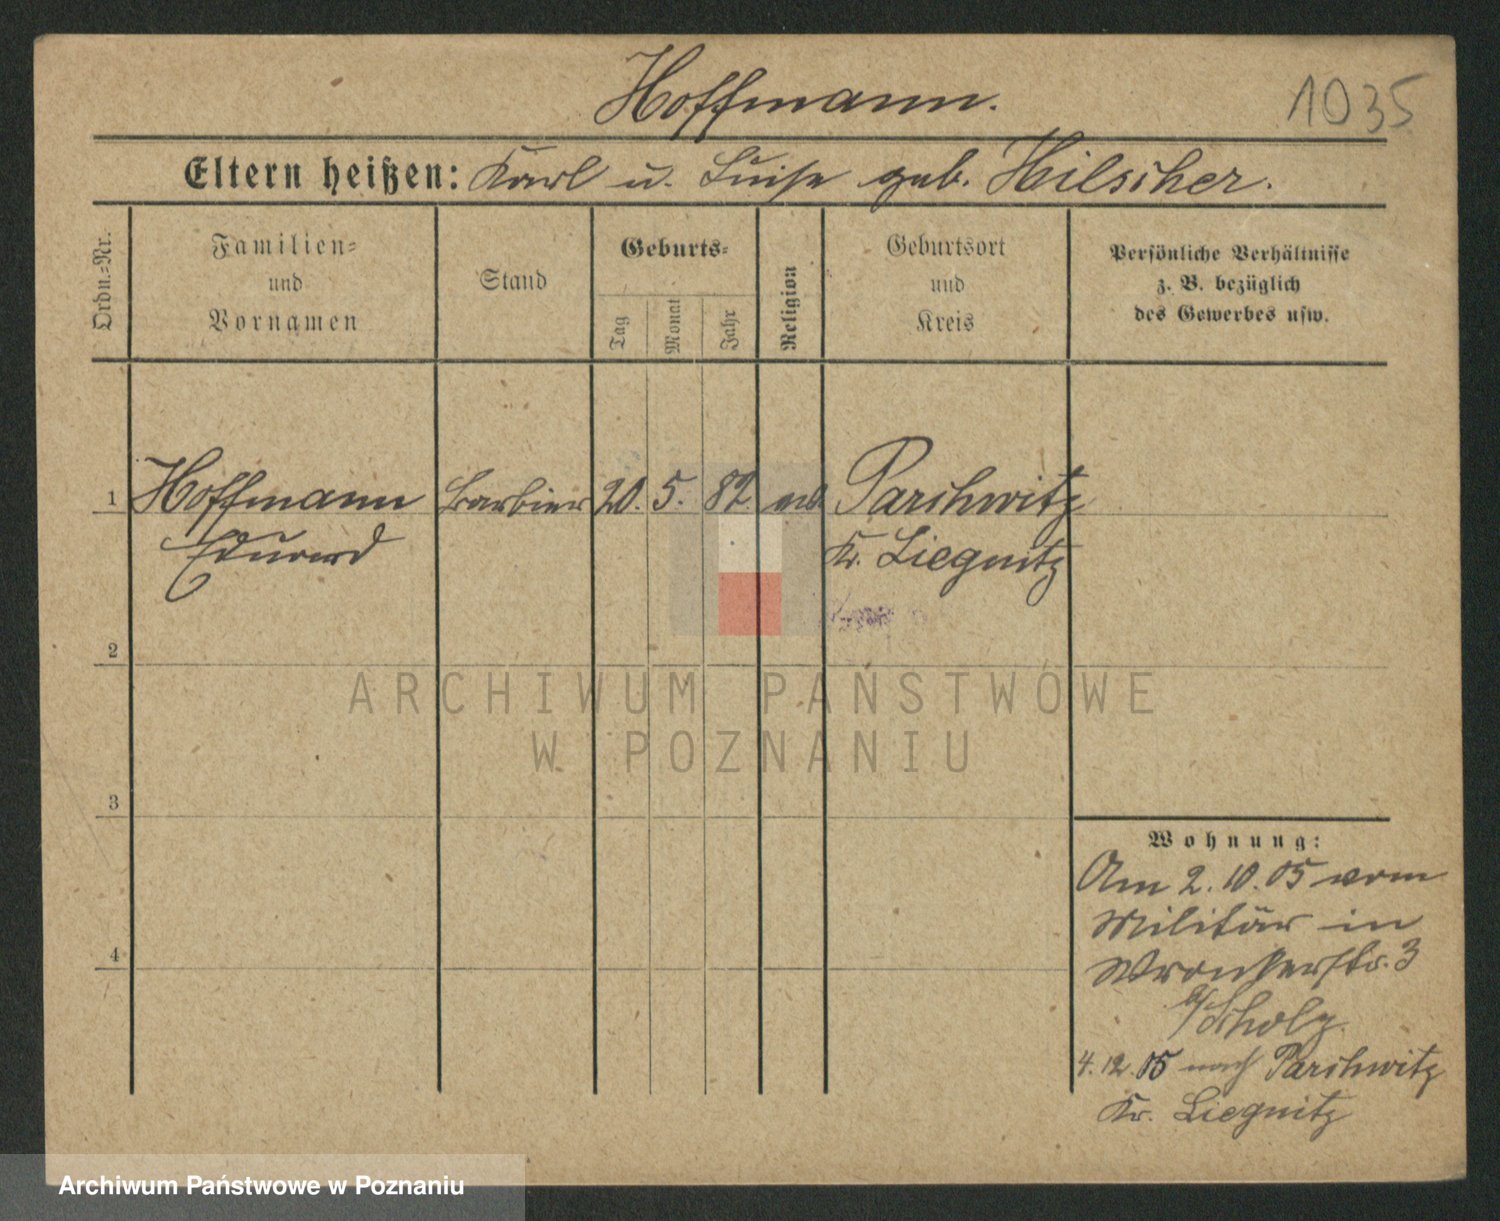 Hoffmann.
1035
Eltern heißen: Karl u. Luise geb. Hilscher.
Ordn.-Nr.
Familien-
und
Vornamen
Stand
Geburts-
Tag
Monat
Jahr
Religion
Geburtsort
und
Kreis
Persönliche Verhältnisse
z. B. bezüglich
des Gewerbes usw.
1 Hoffmann Barbier 20. 5. 82 Parchwitz
Eduard Kr. Liegnitz
2
ARCHIWUM PAŃSTWOWE
W POZNANIU
3
Wohnung:
Am 2.10.05 vom
Militär in
4
Wronkerstr. 3
b/Scholz.
4.12.05 nach Parchwitz
Kr. Liegnitz
Archiwum Państwowe w Poznaniu